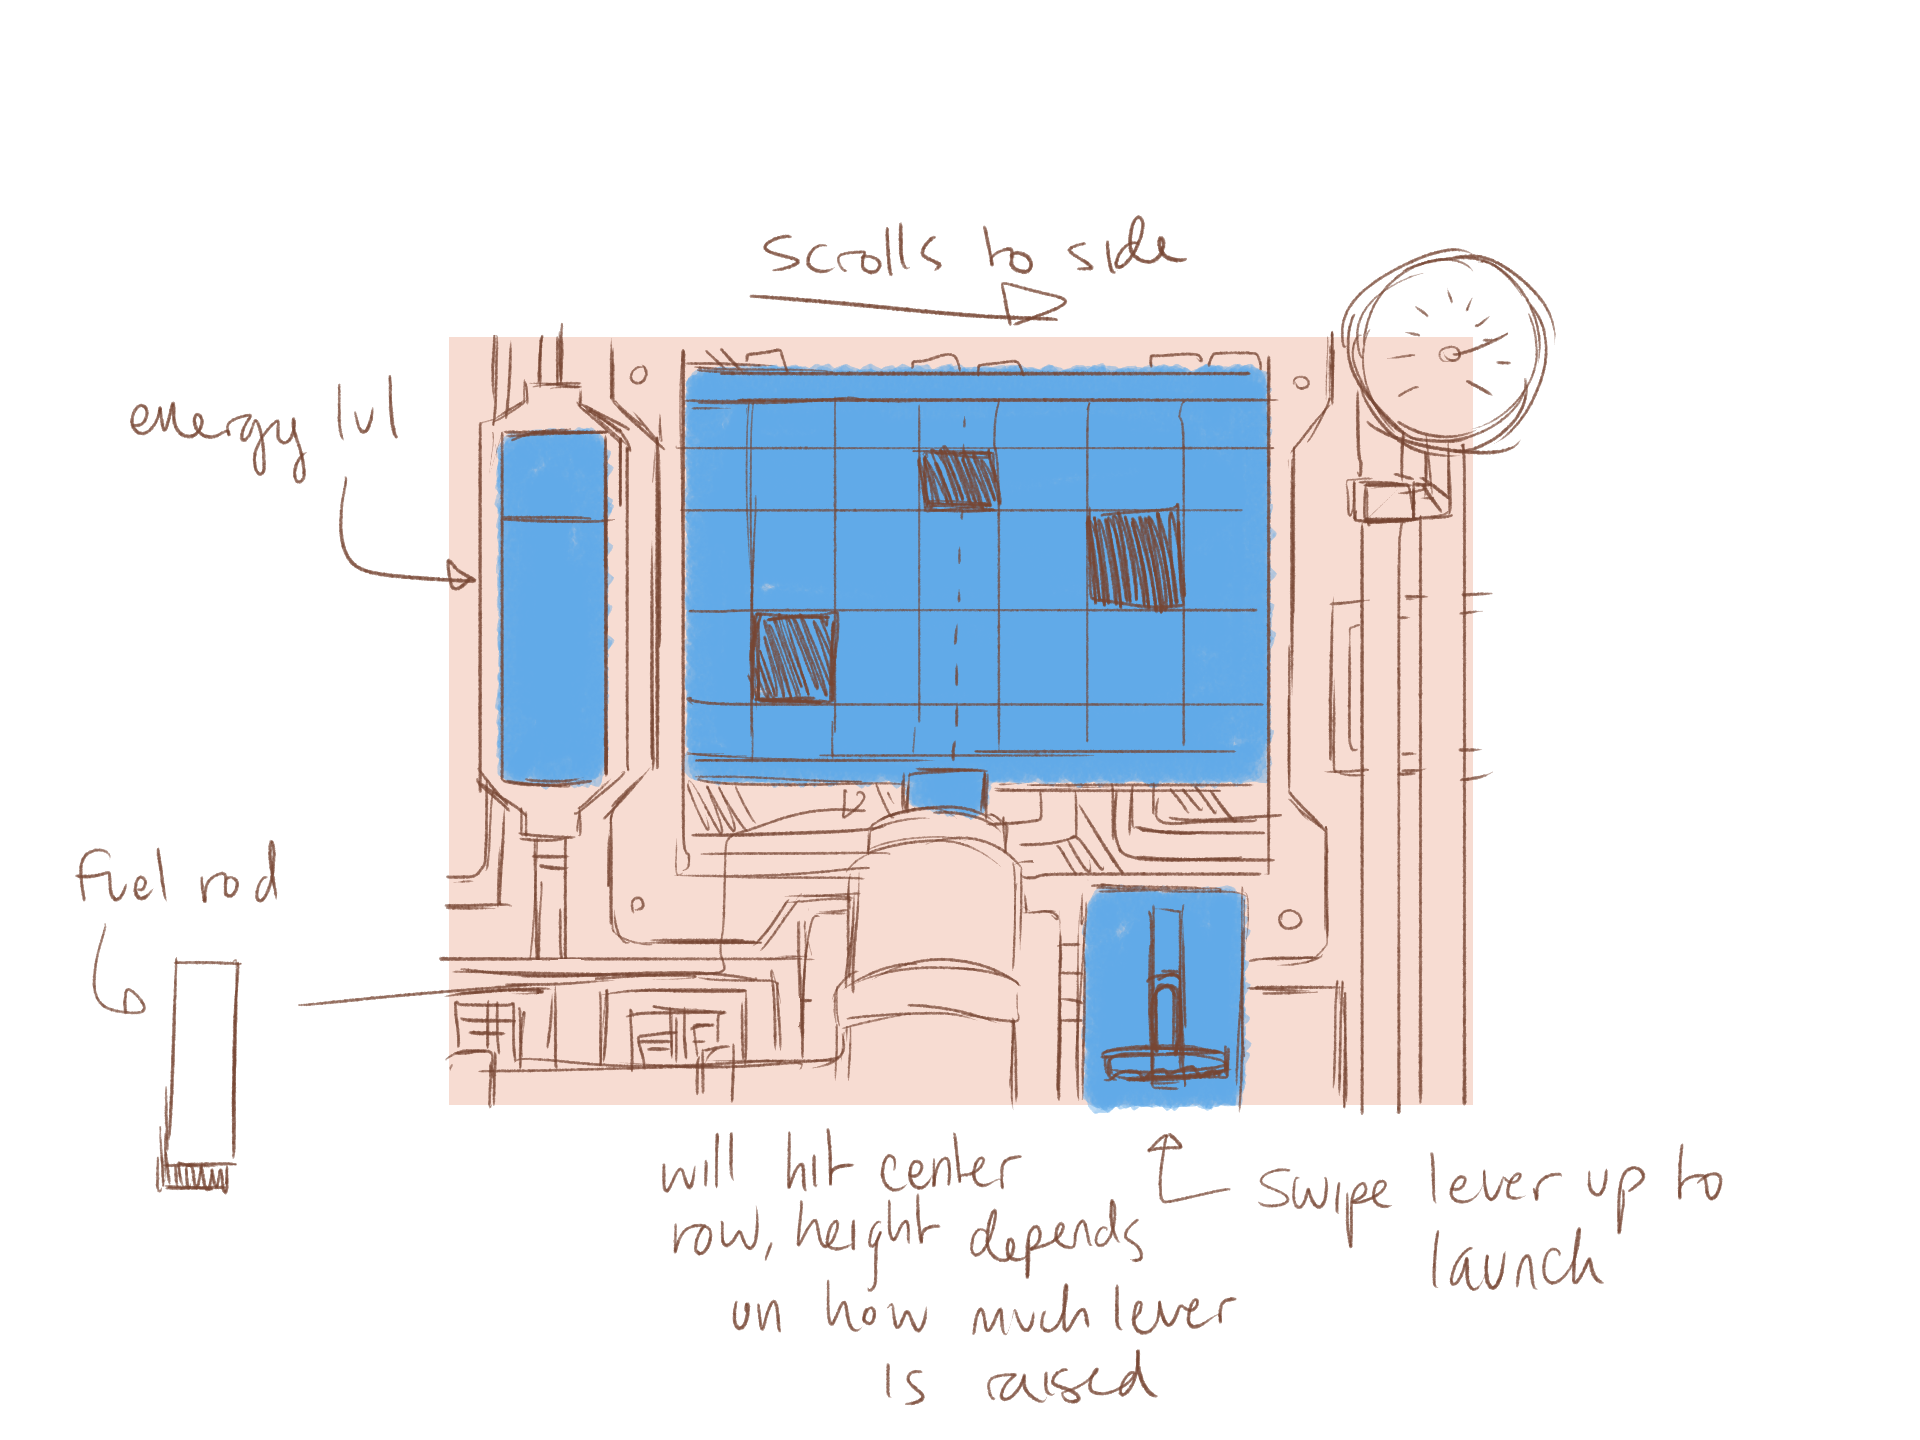 scrolls to side
energy lvl
fuel rod
will hit center
row, height depends
on how much lever
is raised
swipe lever up to
launch